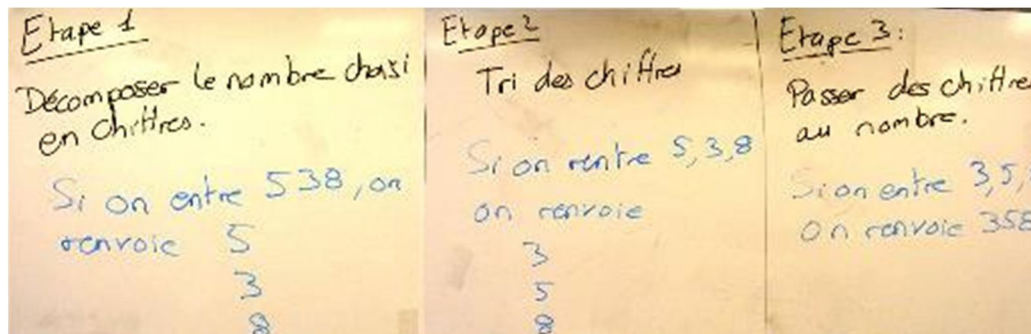 Etape 1
Décomposer le nombre choisi
en chiffres.
Si on entre 538, on
renvoie 5
3
8
Etape 2
Tri des chiffres
Si on rentre 5, 3, 8
on renvoie
3
5
8
Etape 3:
Passer des chiffres
au nombre.
Si on entre 3, 5,
on renvoie 358